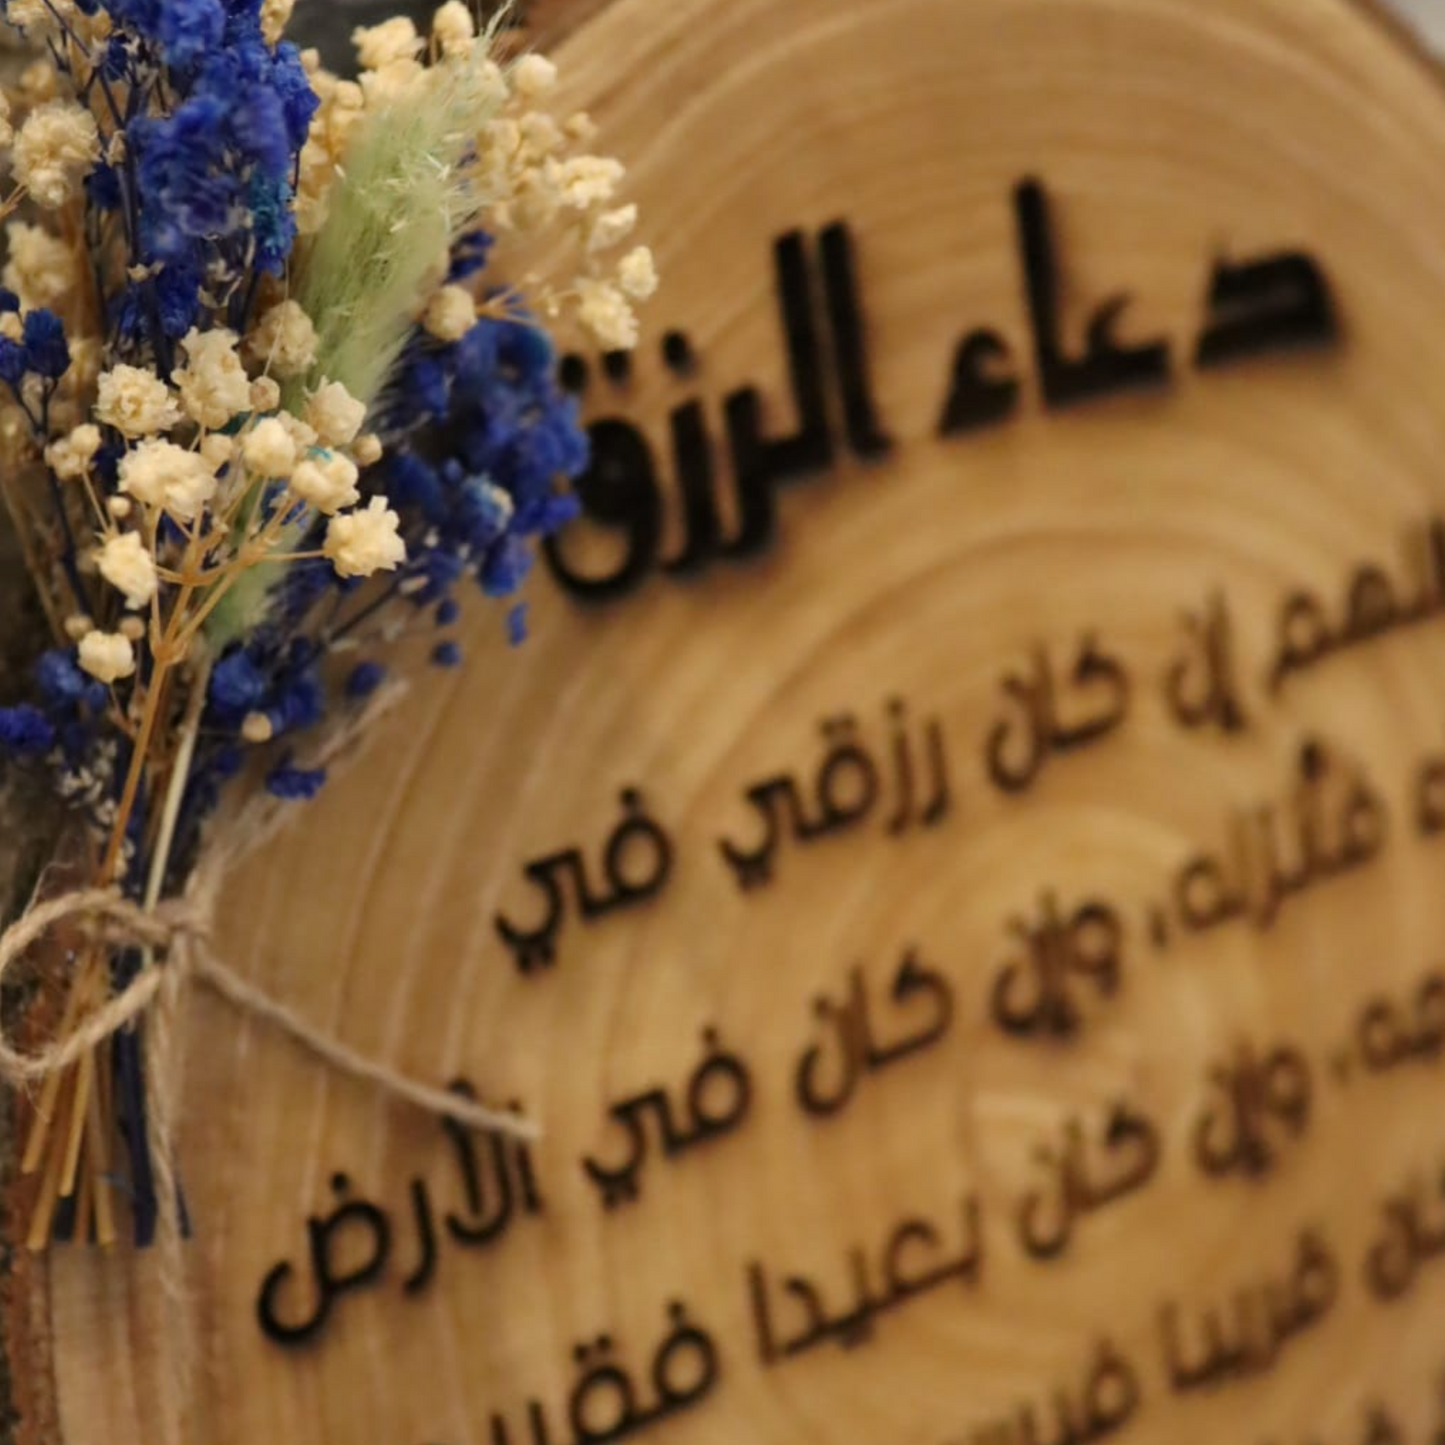 دعاء الرزق
اللهم إن كان رزقي في
فأنزله، وإن كان في الأرض
وإن كان بعيدا فقر
قريبا فيسر